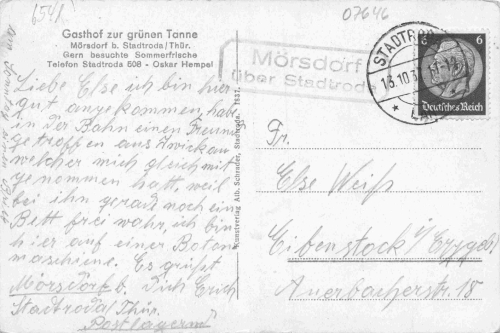 6548
07646
Gasthof zur grünen Tanne
Mörsdorf b. Stadtroda/Thür.
Gern besuchte Sommerfrische
Telefon Stadtroda 508 - Oskar Hempel
Mörsdorf
über Stadtroda
STADTRODA
13.10.3
6 6
Deutsches Reich
Liebe Else ich bin hier
gut angekommen, habe
in der Bahn einen Freund
getroffen aus Zwickau
welcher mich gleich mit
genommen hatt, weil
bei ihn gerad noch ein
Bett frei wahr, ich bin
hier auf einer
maschiene. Es grüßt
Mörsdorf b. Dich Erich
Stadtroda/Thür.
„Postlagernd"
Kunstverlag Alb. Schrader, Stadtroda. 1137.
Fr.
Else Weiß
Eibenstock i/Erzgeb.
Auerbacherstr. 18